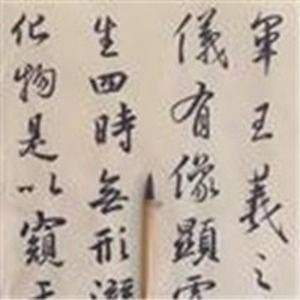 軍王羲之
儀有像顯覆
生四時無形潛
化物是以窺天